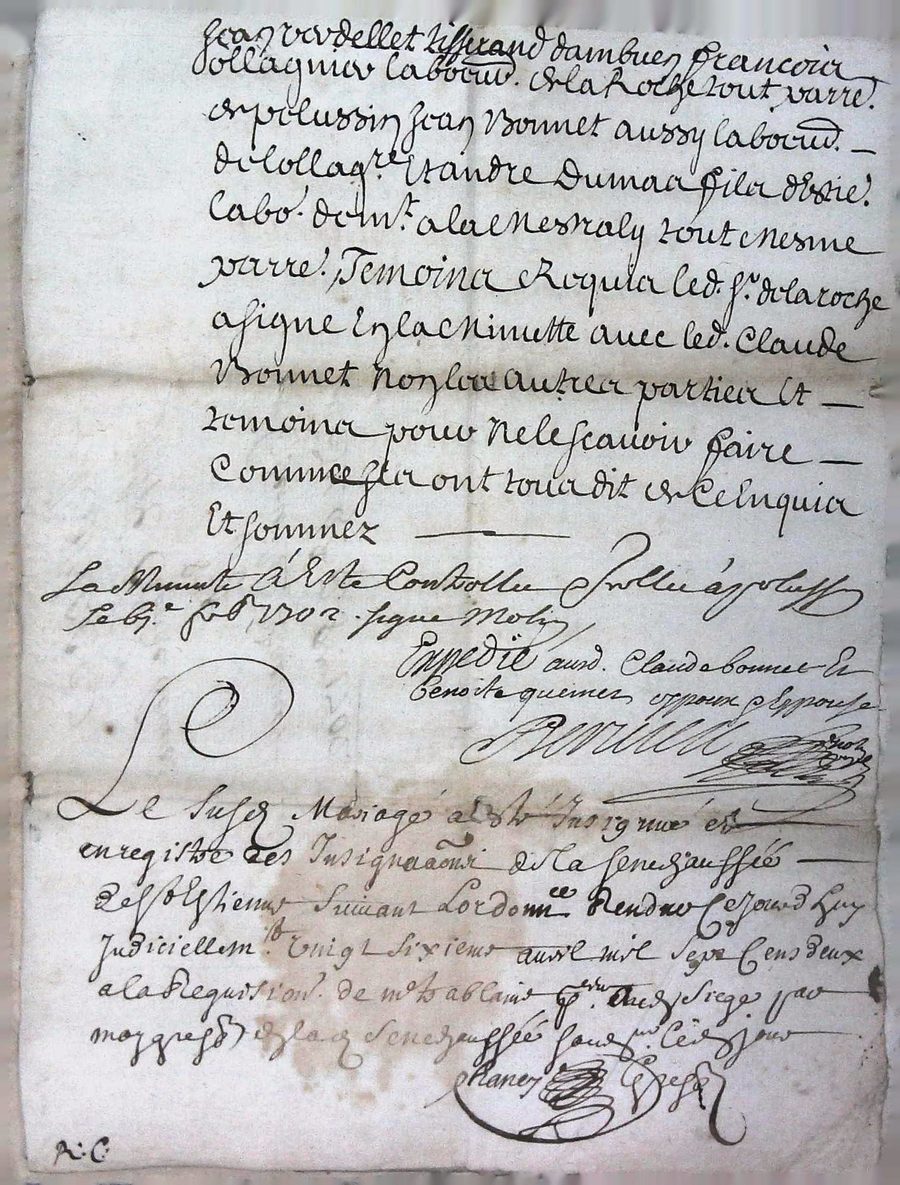 Jean verdellet tisserand dambuen francois
ollagnier laboeud. de la Roche tout parre.
de pelussin Jean Bonnet aussy laboeud.
de lollagre Et andre Dumas fils destie.
labo. demt. a la tout mesme
parre. Temoins Requis led. Sr. de la roche
a signe En la Minutte avec led. Claude
Bonnet non les autres parties Et
temoins pour ne le scavoir faire
Comme Ils ont tous dit de Ce Enquis
Et sommez
La Minutte á Esté Controllee á peluss
Le feb 1702 . signe
Expedié ausd. Claude bonnet Et
benoite espoux Espouse
Le susd Mariage a esté Insignué et
enregistré és Insignuaons de la seneschaussée
de st Estienne suivant Lordonnce Rendue Cejourdhuy
Judiciellemt. vingt sixieme avril mil sept Cens deux
a la Requision. de me siege par
moy gref de lad Seneschaussée soubsne Cedt jour
R. C.